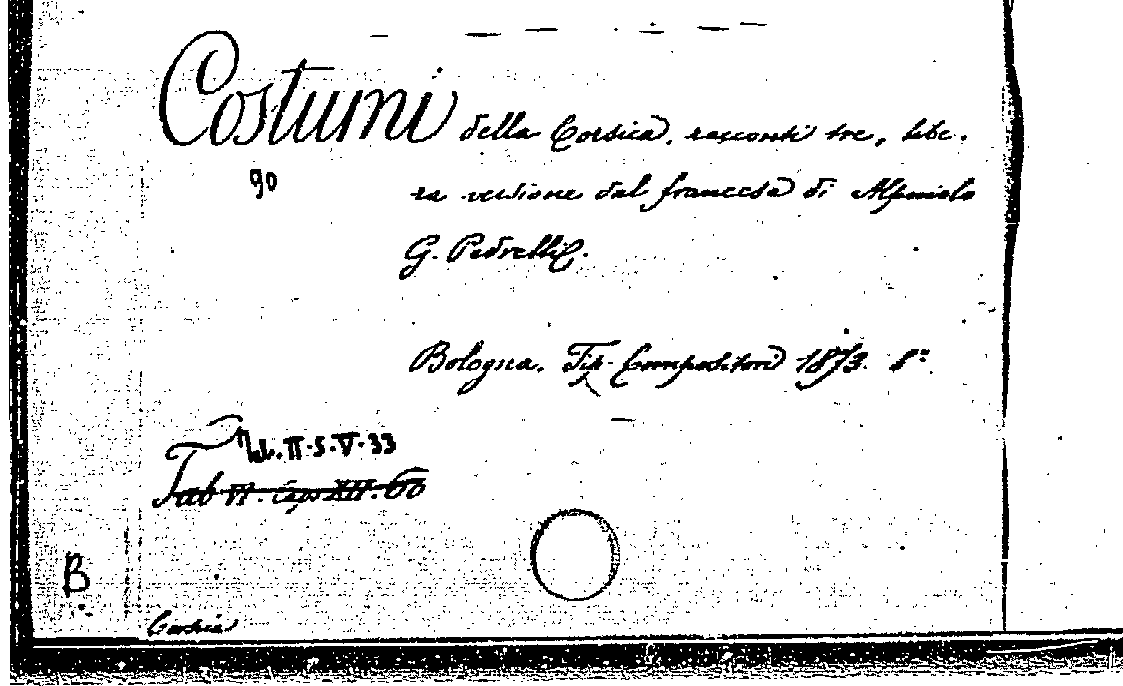 Costumi della Corsica, racconti tre, libe-
90
ra versione dal francese di Alpinolo
G. Pedrelli.
Bologna. Tip. Compositori 1873. 8°
Tab. II.S.V.33
Tab VI. Caps XII. 60
B
Corsica